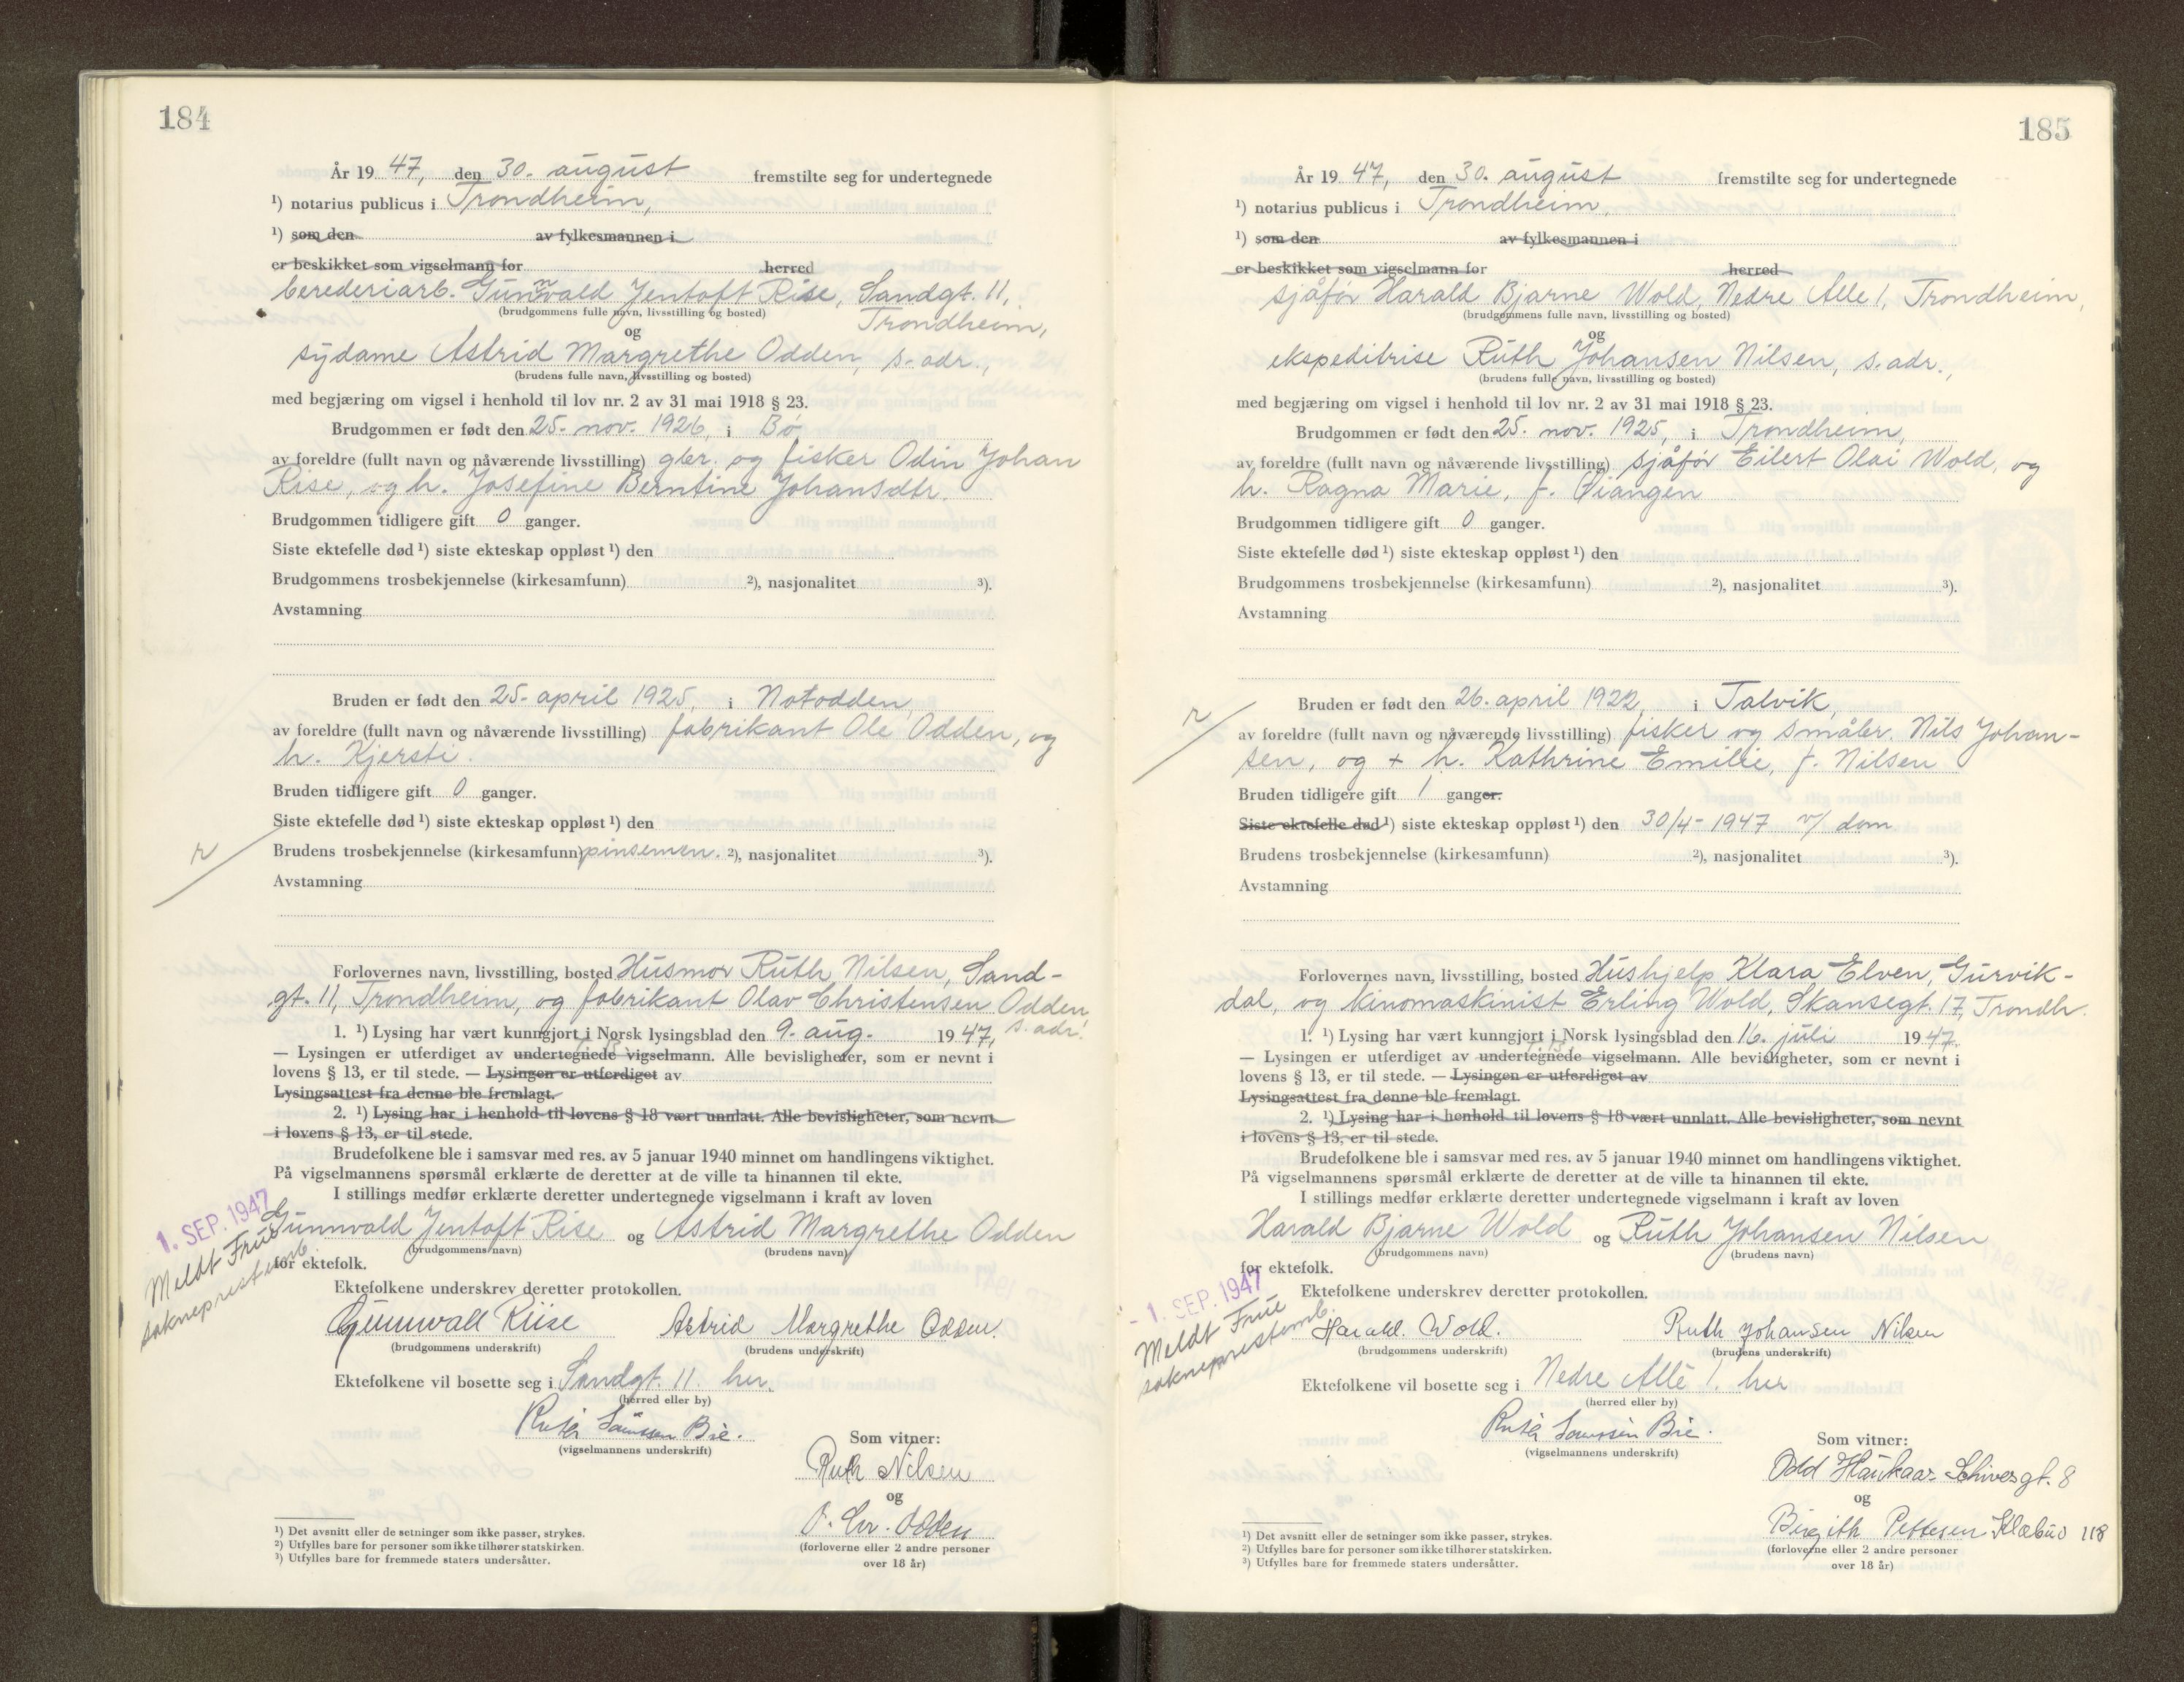 184
År 19 47, den 30. august fremstilte seg for undertegnede
¹) notarius publicus i Trondheim,
¹) som den av fylkesmannen i
er beskikket som vigselmann for herred
berederiarb. Gunnvald Jentoft Rise, Sandgt. 11,
(brudgommens fulle navn, livsstilling og bosted) Trondheim,
og
sydame Astrid Margrethe Odden, s. adr.,
(brudens fulle navn, livsstilling og bosted)
med begjæring om vigsel i henhold til lov nr. 2 av 31 mai 1918 § 23.
Brudgommen er født den 25. nov. 1926, i Bø
av foreldre (fullt navn og nåværende livsstilling) gbr. og fisker Odin Johan
Rise, og h. Josefine Berntine Johansdtr.
Brudgommen tidligere gift 0 ganger.
Siste ektefelle død ¹) siste ekteskap oppløst ¹) den
Brudgommens trosbekjennelse (kirkesamfunn) ²), nasjonalitet ³).
Avstamning
Bruden er født den 25. april 1925, i Notodden,
av foreldre (fullt navn og nåværende livsstilling) fabrikant Ole Odden, og
h. Kjersti.
Bruden tidligere gift 0 ganger.
Siste ektefelle død ¹) siste ekteskap oppløst ¹) den
r
Brudens trosbekjennelse (kirkesamfunn) pinsemen. ²), nasjonalitet ³).
Avstamning
Forlovernes navn, livsstilling, bosted Husmor Ruth Nilsen, Sand-
gt. 11, Trondheim, og fabrikant Olav Christensen Odden
s. adr.
1. ¹) Lysing har vært kunngjort i Norsk lysingsblad den 9. aug. 19 47,
— Lysingen er utferdiget av undertegnede vigselmann. Alle bevisligheter, som er nevnt i
lovens § 13, er til stede. — Lysingen er utferdiget av
Lysingsattest fra denne ble fremlagt.
2. ¹) Lysing har i henhold til lovens § 18 vært unnlatt. Alle bevisligheter, som nevnt
i lovens § 13, er til stede.
Brudefolkene ble i samsvar med res. av 5 januar 1940 minnet om handlingens viktighet.
På vigselmannens spørsmål erklærte de deretter at de ville ta hinannen til ekte.
I stillings medfør erklærte deretter undertegnede vigselmann i kraft av loven
1. SEP. 1947
Meldt Frue
sokneprestemb.
Gunnvald Jentoft Rise og Astrid Margrethe Odden
(brudgommens navn) (brudens navn)
for ektefolk.
Ektefolkene underskrev deretter protokollen.
Gunnvald Riise Astrid Margrethe Odden.
(brudgommens underskrift) (brudens underskrift)
Ektefolkene vil bosette seg i Sandgt. 11. her.
(herred eller by)
Bie.
(vigselmannens underskrift)
Som vitner:
Ruth Nilsen
og
O. Chr. Odden
(forloverne eller 2 andre personer
over 18 år)
¹) Det avsnitt eller de setninger som ikke passer, strykes.
²) Utfylles bare for personer som ikke tilhører statskirken.
³) Utfylles bare for fremmede staters undersåtter.
185
År 19 47, den 30. august fremstilte seg for undertegnede
¹) notarius publicus i Trondheim,
¹) som den av fylkesmannen i
er beskikket som vigselmann for herred
sjåfør Harald Bjarne Wold, Nedre Alle 1, Trondheim,
(brudgommens fulle navn, livsstilling og bosted)
og
ekspeditrise Ruth Johansen Nilsen, s. adr.,
(brudens fulle navn, livsstilling og bosted)
med begjæring om vigsel i henhold til lov nr. 2 av 31 mai 1918 § 23.
Brudgommen er født den 25. nov. 1925, i Trondheim,
av foreldre (fullt navn og nåværende livsstilling) sjåfør Eilert Olai Wold, og
h. Ragna Marie, f. Øiangen
Brudgommen tidligere gift 0 ganger.
Siste ektefelle død ¹) siste ekteskap oppløst ¹) den
Brudgommens trosbekjennelse (kirkesamfunn) ²), nasjonalitet ³).
Avstamning
Bruden er født den 26. april 1922, i Talvik,
r
av foreldre (fullt navn og nåværende livsstilling) fisker og småbr. Nils Johan-
sen, og + h. Kathrine Emilie, f. Nilsen
Bruden tidligere gift 1 ganger.
Siste ektefelle død ¹) siste ekteskap oppløst ¹) den 30/4 - 1947 v/ dom
Brudens trosbekjennelse (kirkesamfunn) ²), nasjonalitet ³).
Avstamning
Forlovernes navn, livsstilling, bosted Hushjelp Klara Elven, Gurvik-
dal, og kinomaskinist Erling Wold, Skansegt. 17, Trondh.
1. ¹) Lysing har vært kunngjort i Norsk lysingsblad den 16. juli 19 47.
— Lysingen er utferdiget av undertegnede vigselmann. Alle bevisligheter, som er nevnt i
lovens § 13, er til stede. — Lysingen er utferdiget av
Lysingsattest fra denne ble fremlagt.
2. ¹) Lysing har i henhold til lovens § 18 vært unnlatt. Alle bevisligheter, som nevnt
i lovens § 13, er til stede.
Brudefolkene ble i samsvar med res. av 5 januar 1940 minnet om handlingens viktighet.
På vigselmannens spørsmål erklærte de deretter at de ville ta hinannen til ekte.
I stillings medfør erklærte deretter undertegnede vigselmann i kraft av loven
Harald Bjarne Wold og Ruth Johansen Nilsen
(brudgommens navn) (brudens navn)
for ektefolk.
- 1. SEP. 1947
Meldt Frue
sokneprestemb.
Ektefolkene underskrev deretter protokollen.
Harald. Wold. Ruth Johansen Nilsen
(brudgommens underskrift) (brudens underskrift)
Ektefolkene vil bosette seg i Nedre Allè 1. her
(herred eller by)
Bie.
(vigselmannens underskrift)
Som vitner:
Odd Haukaas Schivesgt. 8
og
Birgith Pettesen Klæbuv 118
(forloverne eller 2 andre personer
over 18 år)
¹) Det avsnitt eller de setninger som ikke passer, strykes.
²) Utfylles bare for personer som ikke tilhører statskirken.
³) Utfylles bare for fremmede staters undersåtter.